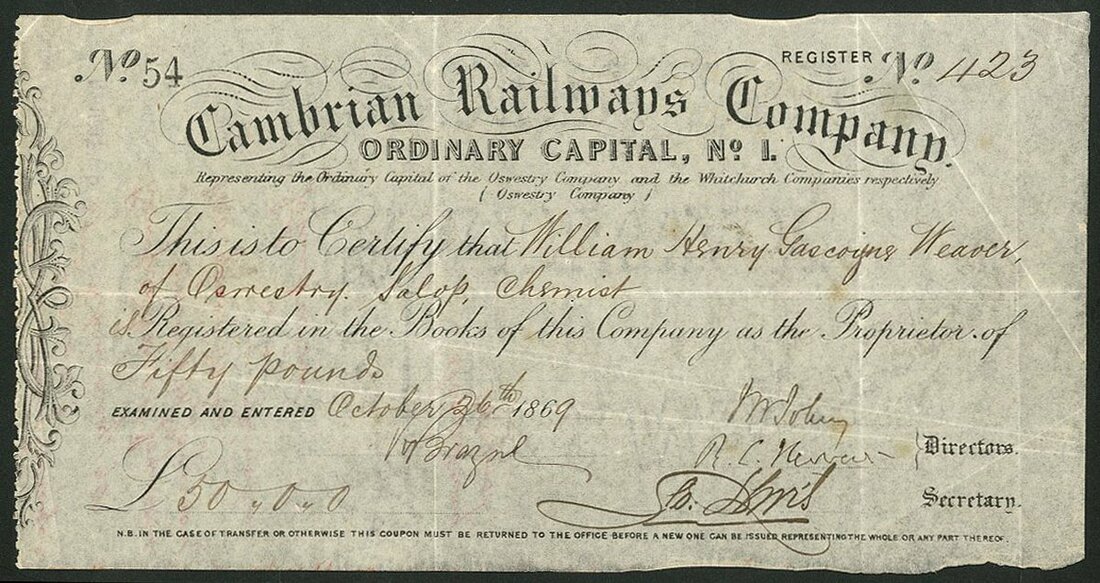 No 54
REGISTER No 423
Cambrian Railways Company.
ORDINARY CAPITAL, No 1.
Representing the Ordinary Capital of the Oswestry Company and the Whitchurch Companies respectively
( Oswestry Company )
This is to Certify that William Henry Gascoyne Weaver,
of Oswestry. Salop, Chemist
is Registered in the Books of this Company as the Proprietor of
Fifty pounds
EXAMINED AND ENTERED October 26th 1869
Directors.
£50,,0,,0
Secretary.
N.B. IN THE CASE OF TRANSFER OR OTHERWISE THIS COUPON MUST BE RETURNED TO THE OFFICE BEFORE A NEW ONE CAN BE ISSUED REPRESENTING THE WHOLE OR ANY PART THEREOF.